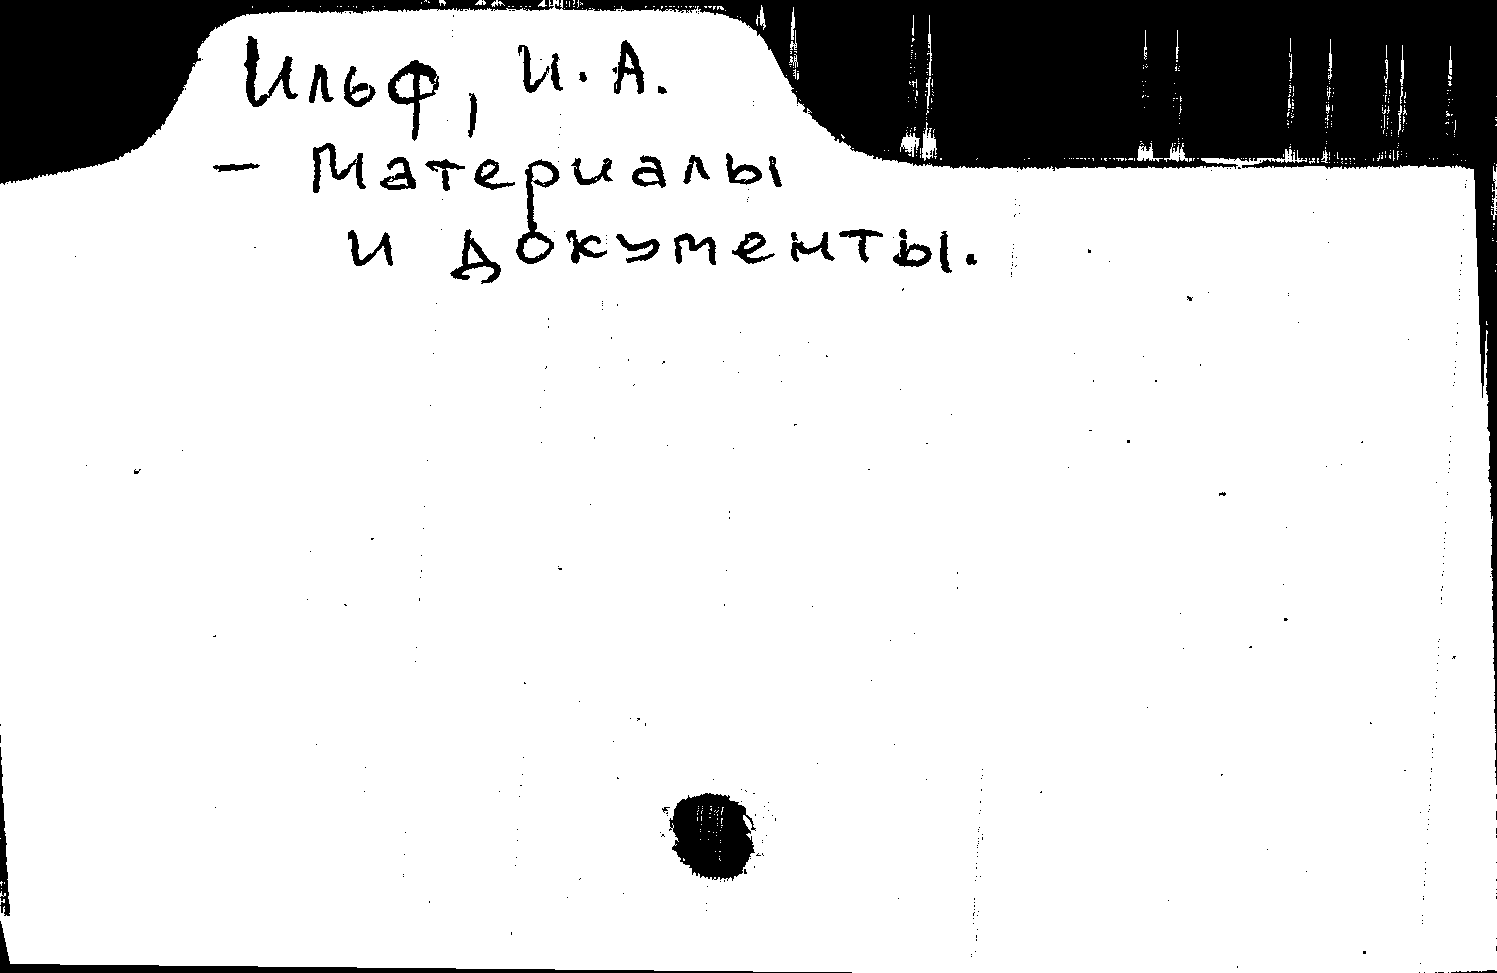 Ильф, И.А.
- Материалы
и документы.